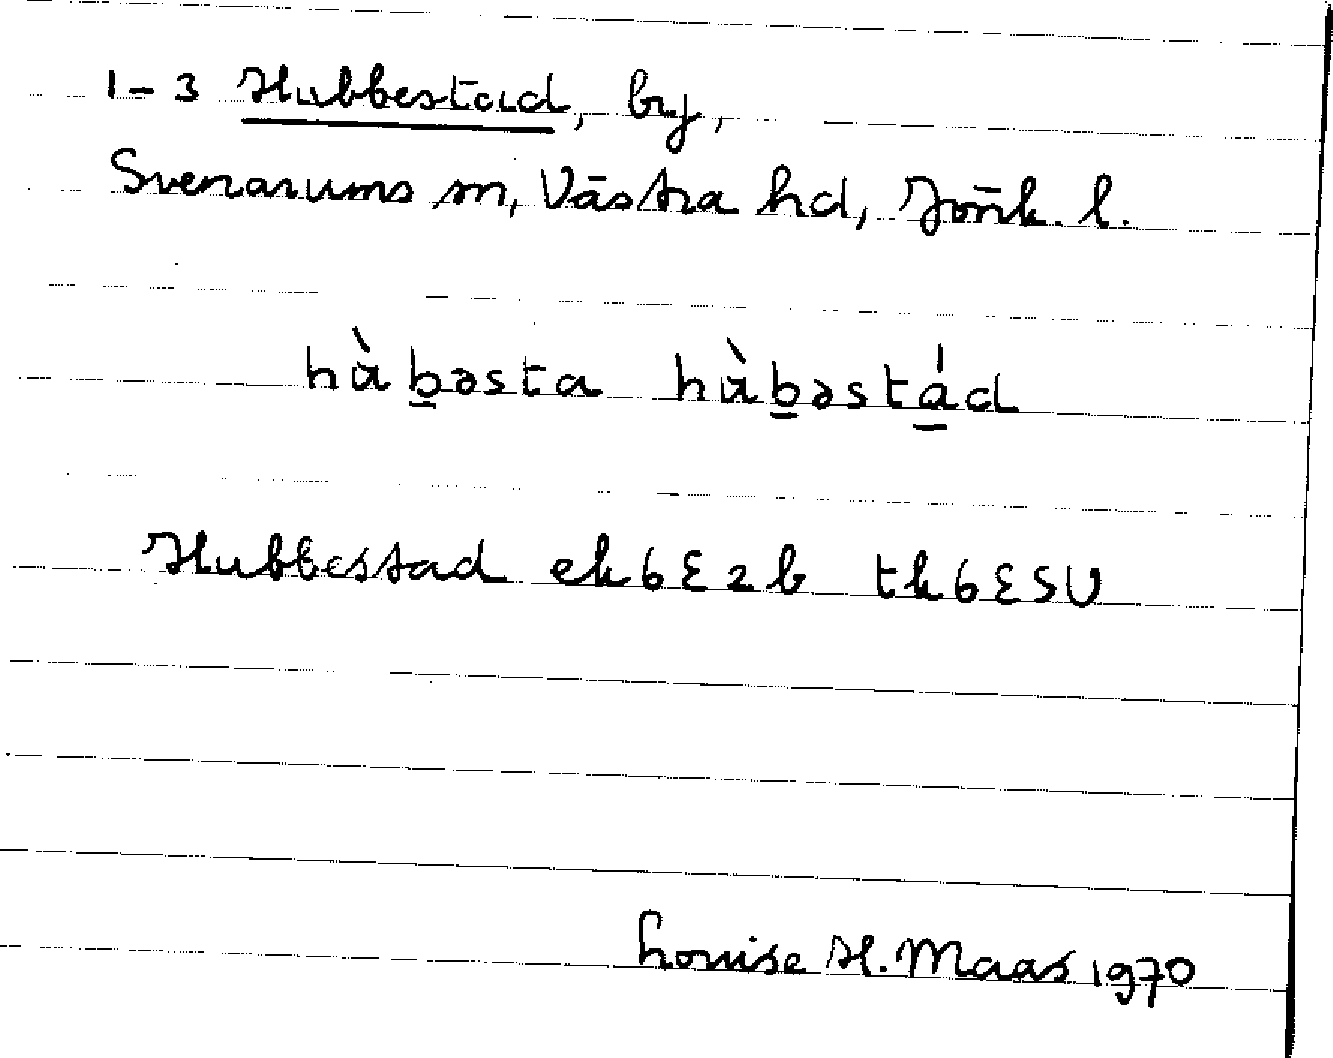 1-3 Hubbestad, by,
Svenarums sn, Västra hd, Jönk. l.
hàb̲əsta hàb̲əstá̲d
Hubbestad ek 6E2b tk 6ESV
Louise H. Maas 1970